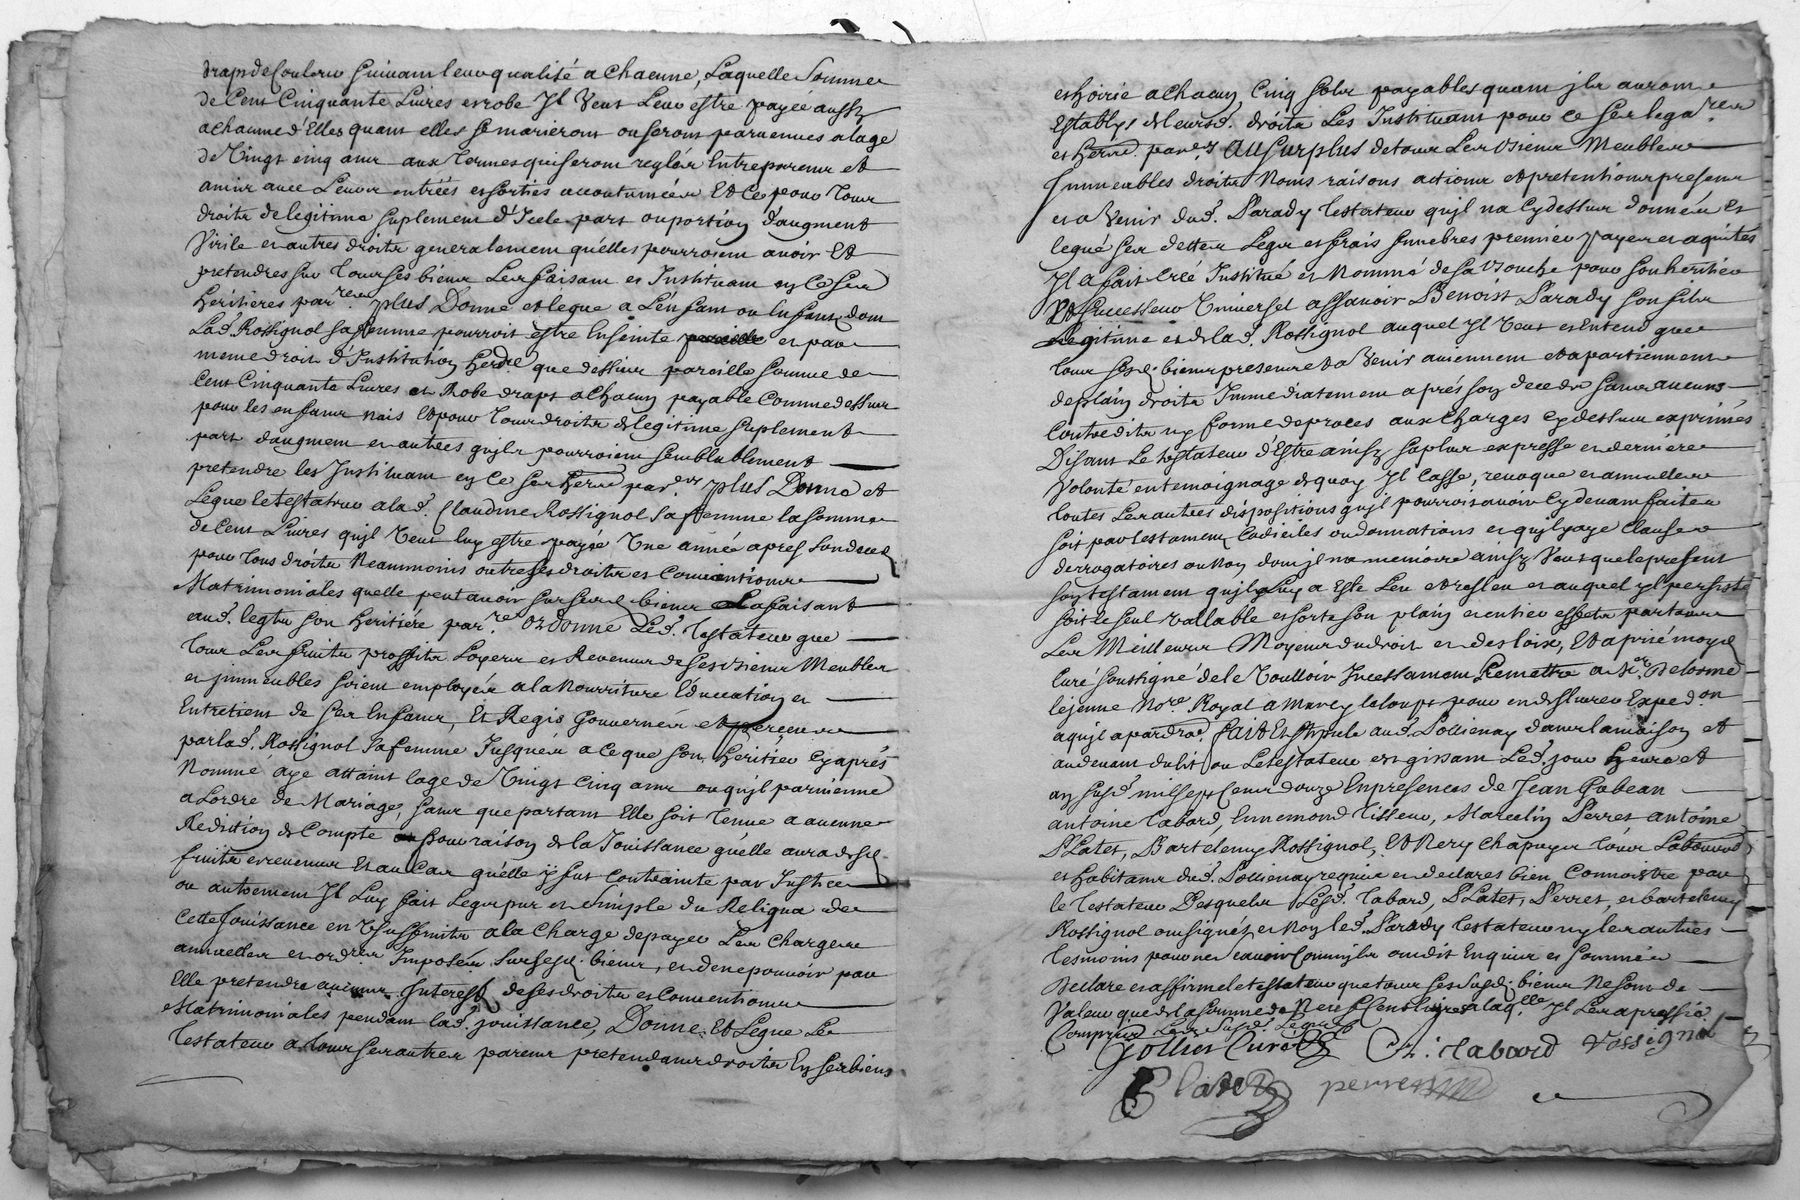 draps de Couleur suivant leur qualité a Chacune, Laquelle Somme
de Cent Cinquante Livres et robe Il Veut Leur estre payée aussy
a chacune d'Elles quant elles se marieront ou seront parvenues a lage
de Vingt cinq ans aux Termes qui seront reglés Entre parens et
amis avec Leurs entrées et sorties accoutumées Et Ce pour Tous
droits de legitime suplement d'Icele part ou portion d'augment
Virile et autres droits generalement qu'elles pourroient avoir Et
pretendre sur Tous ses biens Les faisant et Instituant en Ce Ses
heritieres par.res plus Donne et legue a L'enfant ou Enfans dont
Lad. Rossignol sa femme pourroit estre Enseinte et par
meme droit d'Institution herdre que dessus pareille somme de
Cent Cinquante Livres et Robe draps a Chacun payable Comme dessus
pour les enfans nais Et pour Tous droits de legitime suplement
part daugment et autres qu'ils pourroient semblablement
pretendre les Instituant en Ce ses herrs par.ers plus Donne et
Legue le testateur a lad. Claudine Rossignol sa femme la somme
de Cent Livres qu'il Veut luy estre payée Une année apres son deces
pour Tous droits Neammoins outre ses droits et Conventions
Matrimoniales quelle peut avoir sur sesd. biens La faisant
aud. legts son heritiére par.re ordonne Led. Testateur que
Tous Les fruits proffits Loyers et Revenus de ses biens Meubles
et jmmeubles soient employés a la Nourriture Education et
Entretient de ses Enfans, Et Regis Gouvernés et perceus
par lad. Rossignol sa femme Jusques a ce que son heritier Cy aprés
Nommé aye attaint lage de Vingt Cinq ans ou qu'jl parvienne
a Lordre de Mariage, sans que partant Elle soit Tenue a aucune
Reddition de Compte pour raison de la Jouissance qu'elle aura desd.
fruits et revenus Et au Cas qu'elle y fut Contrainte par Justice
ou autrement Il Luy fait Legs pur et simple du Reliqua de
Cette Jouissance en Usufruits a la Charge de payer Les Charges
annuelles et ord.res Imposées sur sesd. biens, et de ne pouvoir par
Elle pretendre aucuns Interest de ses droits et Conventions
Matrimoniales pendant lad. jouissance, Donne Et Legue Le
Testateur a tous ses autres parens pretendans droits En ses biens
et hoirie a chacun Cinq sols payables quant jls auront
Establys de leursd. droits Les Instituant pour ce ses lega.res
et herrs par.ers Au surplus de tous Les biens Meubles
Immeubles droits Noms raisons actions et pretentions presens
et a Venir dud. Parady Testateur qu'jl na Cy dessus donnés Et
legué ses dettes Legs et frais funebres premier payer et aquités
Il a fait Créé Institué et Nommé de sa bouche pour son heritier
Et Successeur Universel assavoir Benoist Parady son fils
Legitime et de lad. Rossignol auquel Il Veut et Entend que
Tous sesd. biens presens et a Venir aviennent et apartiennent
de plain droits Immediatement aprés son deceds sans aucuns
Contredits ny forme de proces aux Charges Cy dessus exprimés
Disant Le testateur d'Estre ainsy sa plus expresse et derniere
Volonté en temoignage de quoy Il Casse, revoque et annulle
Toutes Les autres dispositions qu'jl pourroit avoir Cy devant faites
soit par testament Codiciles ou donnations et qu'il y aye Clauses
derrogatoires ou Non dont jl na memoire ainsy Veut que le present
son testament qu'jl luy a Este Leu et releu et auquel jl persiste
soit le seul vallable et sorte son plain et entier effets par tous
Les Meilleurs Moyens du droit et des loix, Et a prié moyd.
Curé soussigné de le Voulloir Incessamant Remettre a Me. Delorme
le jeune No.re Royal a Marcy la loup pour en deslivrer Exped.on
a qu'jl apardra. fait Et stipulé aud. Pollienay dans la maison et
au devant du lit ou Le testateur est gissant Led. jour heure et
an susd. mil sept Cens douze En presences de Jean Gabean
antoine Tabard, Ennemond Tisseur, Marcelin Perret antoine
P Latet, Bartelemy Rossignol, Et Rery Chapuys tous Laboureurs
et habitans dud. Pollienay requis et declares bien Connoistre par
le Testateur Desquels Lesd. Tabard, P Latet, Perret, et bartelemy
Rossignol ont signés et Non led. Parady testateur ny les autres
Tesmoins pour ne scavoir Comme jls ont dit Enquis et sommés
Declare et affirme le testateur que tous ses susd. biens Ne sont de
Valeur que de la somme de Neuf Cens livres a laq.lle Il Les apressié
Compris Les susd. Legs
Gollier Curé Tabard Rossignol
Platet perret